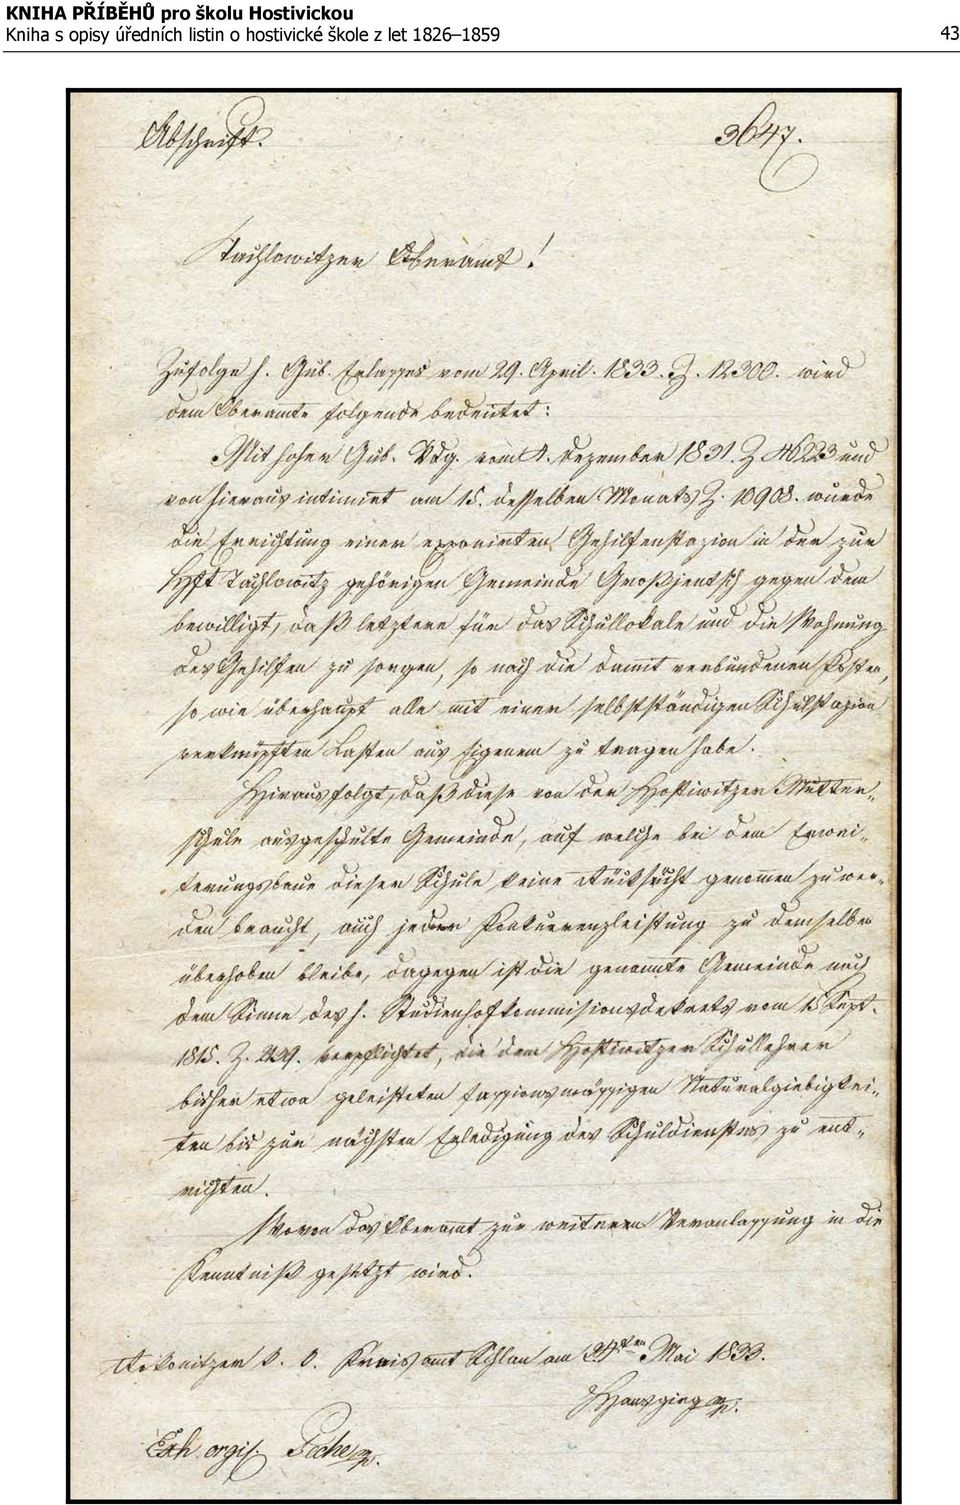 KNIHA PŘÍBĚHŮ pro školu Hostivickou
Kniha s opisy úředních listin o hostivické škole z let 1826–1859 43
Abschrift. 3647.
Tachlowitzer Oberamt!
Zufolge h. Gub. Erlasses vom 29. April. 1833. Z. 12300. wird
dem Oberamte folgende bedeutet:
Mit hoher Gub. Vdg. vom 1. Dezember 1831. Z 46223 und
von hieraus intimirt am 15. desselben Monats Z. 10908. wurde
die Errichtung einer exponirten Gehilfenstazion in der zur
Hft Tachlowitz gehörigen Gemeinde Großjentsch gegen dem
bewilligt, daß letztere für das Schullokale und die Wohnung
des Gehilfen zu sorgen, so nach die damit verbundenen Kosten,
so wie überhaupt alle mit einer selbstständigen Schulstazion
verknüpften Lasten aus Eigenem zu tragen habe.
Hieraus folgt, daß diese von der Hostiwitzer Mutter„
schule ausgeschulte Gemeinde, auf welche bei dem Erwei„
terungsbaue dieser Schule keine Rücksicht genommen zu wer„
den braucht, auch jeder Konkurrenzleistung zu demselben
überhoben bleibe, dagegen ist die genannte Gemeinde nach
dem Sinne des h. Studienhofkommisionsdekrets vom 15 Sept.
1815. Z. verpflichtet, die dem Hostiwitzer Schullehrer
bisher etwa geleisteten fassionsmässigen Naturalgiebigkei„
ten bis zur nächsten Erledigung des Schuldienstes zu ent„
richten.
Wovon das Oberamt zur weiteren Veranlassung in die
Kenntniß gesetzt wird.
Rakonitzer k. k. Kreisamt Schlan am 24ten Mai 1833.
Hansgirg mp.
Exh. orgis. Peche mp.